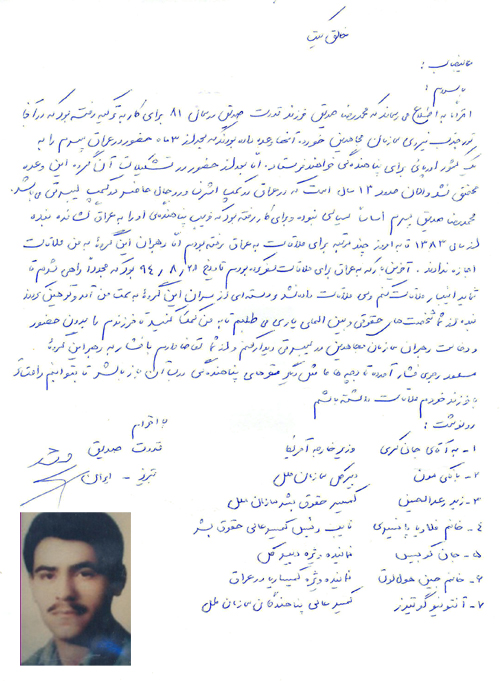 عالیجناب :
با سلام :
احتراماً به اطلاع می رساند که محمدرضا صدیق فرزند قدرت صدیق در سال ۸۱ برای کار به ترکیه رفته بود که در آنجا
سازمان مجاهدین خورد. آنها وعده داده بودند که بعد از ۳ ماه حضور در عراق پسرم را به
یک کشور اروپائی برای پناهندگی خواهند فرستاد. اما بعد از حضور در تشکیلات آن گروه این وعده
محقق نشد و الان حدود ۱۳ سال است که در عراق در کمپ اشرف و در حال حاضر در کمپ لیبرتی می باشد.
محمدرضا صدیق پسرم اساساً سیاسی نبوده و برای کار رفته بود که فریب پناهندگی او را به عراق کشانده بنده
از سال ۱۳۸۳ تا به امروز چند مرتبه برای ملاقات به عراق رفته بودم اما رهبران این گروه به من ملاقات
اجازه ندادند. آخرین بار که به عراق برای ملاقات پسرم بودم تاریخ ۹۴/۸/۲۵ بود که مجدداً راهی شدم تا
ملاقات کنم ولی ملاقات داده نشد و دسته ای از سران این گروه به سمت من آمد و توهین کردند
بنده از شما شخصیت های حقوقی و بین المللی یاری می طلبم تا به من کمک کنید تا فرزندم را بدون حضور
و دخالت رهبران سازمان مجاهدین در لیبرتی دیدار کنم و از شما تقاضا دارم با فشار به رهبر این گروه
مسعود رجوی فشار آورده تا بچه ها مثل دیگر مقرهای پناهندگی درب آن باز باشد تا بتوانیم راحت
با فرزند خودم ملاقات داشته باشم
با احترام
قدرت صدیق
تبریز - ایران
رونوشت :
۱- به آقای جان کری وزیر خارجه آمریکا
۲- بانکی مون دبیر کل سازمان ملل
۳- زید رعد الحسین کمیسر حقوق بشر سازمان ملل
۴- خانم فلاویا پانسیری نایب رئیس کمیسر عالی حقوق بشر
۵- جان کوبیس نماینده ویژه دبیر کل
۶- خانم جین هول لوت نماینده ویژه در عراق
۷- آنتونیو گوترز کمیسر عالی پناهندگان سازمان ملل